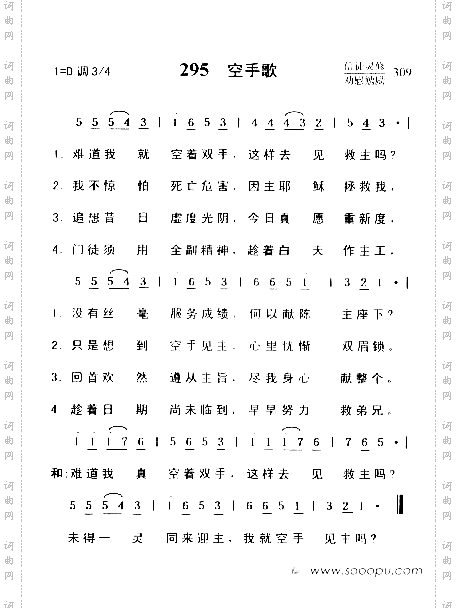 1=D 调 3/4 295 空手歌 309
5 5 5 4 3 | 1 6 5 3 | 4 4 4 3 2 | 5 4 3 · |
1. 难道我 就 空着双手，这样去 见 救主吗？
2. 我不惊 怕 死亡危害，因主耶 稣 拯救我，
3. 追想昔 日 虚度光阴，今日真 愿 重新度，
4. 门徒须 用 全副精神，趁着白 天 作主工，
5 5 5 4 3 | 1 6 5 3 | 6 6 5 1 | 3 2 1 · |
1. 没有丝 毫 服务成绩，何以献陈 主座下？
2. 只是想 到 空手见主，心里忧惭 双眉锁。
3. 回首欢 然 遵从主旨，尽我身心 献整个。
4 趁着日 期 尚未临到，早早努力 救弟兄。
1 1 1 7 6 | 5 1 5 3 | 1 1 1 7 6 | 7 6 5 · |
和：难道我 真 空着双手，这样去 见 救主吗？
5 5 5 4 3 | 1 6 5 3 | 6 6 5 1 | 3 2 1 ·
未得一 灵 同来迎主，我就空手 见主吗？
www.sooopu.com
词曲网
词曲网
词曲网
词曲网
词曲网
词曲网
词曲网
词曲网
词曲网
词曲网